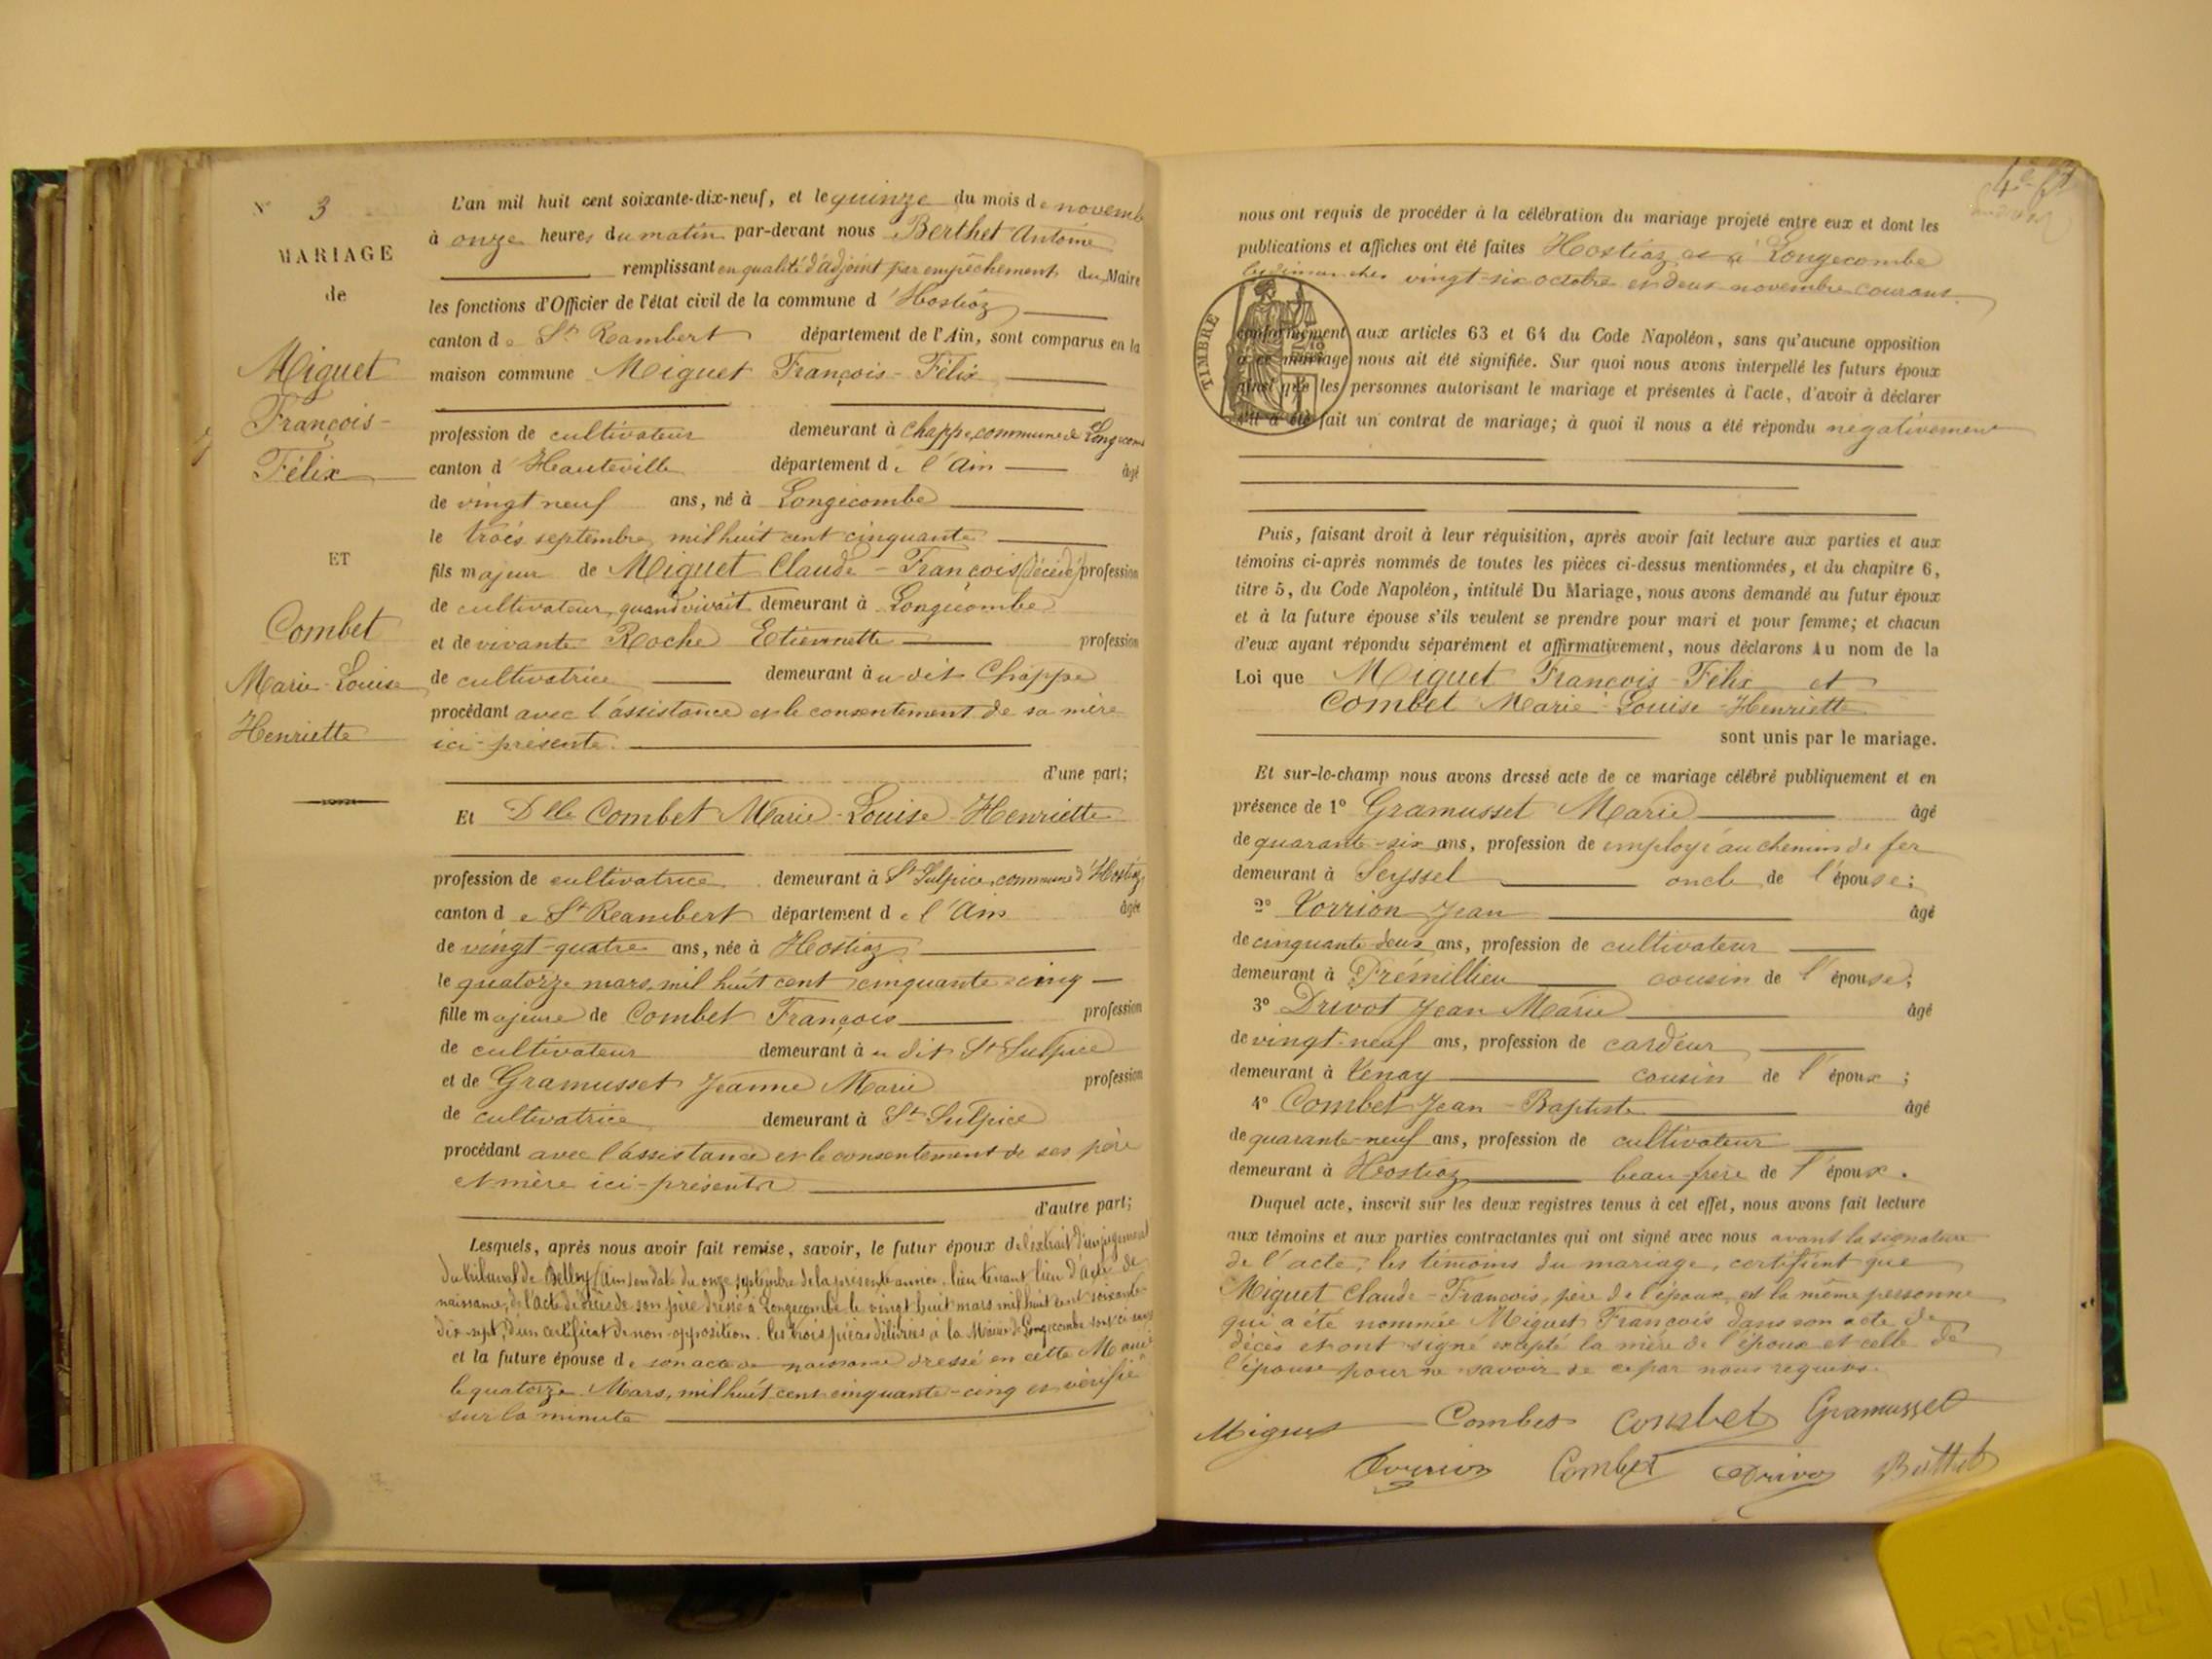 N° 3
MARIAGE
de
Miguet
François-
Félix
ET
Combet
Marie-Louise
Henriette
L'an mil huit cent soixante-dix-neuf, et le quinze du mois de novemb
à onze heures du matin par-devant nous Berthet Antoine
remplissant en qualité d'adjoint par empêchement du Maire
les fonctions d'Officier de l'état civil de la commune d'Hostiaz
canton de St Rambert département de l'Ain, sont comparus en la
maison commune Miguet François-Félix
profession de cultivateur demeurant à Chappe, commune de Longecom
canton d'Hauteville département de l'Ain âgé
de vingt neuf ans, né à Longecombe
le trois septembre mil huit cent cinquante
fils majeur de Miguet Claude-François (décédé) profession
de cultivateur, quand vivait demeurant à Longecombe
et de vivante Roche Etiennette profession
de cultivatrice demeurant au dit Chappe
procédant avec l'assistance et le consentement de sa mère
ici-présente.
d'une part;
Et Dlle Combet Marie-Louise-Henriette
profession de cultivatrice demeurant à St Sulpice, commune d'Hostiaz
canton de St Rambert département de l'Ain âgée
de vingt-quatre ans, née à Hostiaz
le quatorze mars, mil huit cent cinquante-cinq
fille majeure de Combet François profession
de cultivateur demeurant au dit St Sulpice
et de Gramusset Jeanne Marie profession
de cultivatrice demeurant à St Sulpice
procédant avec l'assistance et le consentement de ses père
et mère ici-présents
d'autre part;
Lesquels, après nous avoir fait remise, savoir, le futur époux de l'extrait d'un jugement
du tribunal de Belley (Ain) en date du onze septembre de la présente année, lieu tenant lieu d'acte de
naissance, de l'acte de décès de son père dressé à Longecombe le vingt huit mars mil huit cent soixante
dix-sept, d'un certificat de non-opposition. les trois pièces délivrées à la Mairie de Longecombe sont ci-
et la future épouse de son acte de naissance dressé en cette Mairie
le quatorze Mars, mil huit cent cinquante-cinq et vérifié
sur la minute
nous ont requis de procéder à la célébration du mariage projeté entre eux et dont les
publications et affiches ont été faites Hostiaz et à Longecombe
les dimanches vingt-six octobre et deux novembre courant
TIMBRE
conformément aux articles 63 et 64 du Code Napoléon, sans qu'aucune opposition
à ce mariage nous ait été signifiée. Sur quoi nous avons interpellé les futurs époux
ainsi que les personnes autorisant le mariage et présentes à l'acte, d'avoir à déclarer
s'il a été fait un contrat de mariage; à quoi il nous a été répondu négativement
Puis, faisant droit à leur réquisition, après avoir fait lecture aux parties et aux
témoins ci-après nommés de toutes les pièces ci-dessus mentionnées, et du chapitre 6,
titre 5, du Code Napoléon, intitulé Du Mariage, nous avons demandé au futur époux
et à la future épouse s'ils veulent se prendre pour mari et pour femme; et chacun
d'eux ayant répondu séparément et affirmativement, nous déclarons Au nom de la
Loi que Miguet François-Félix et
Combet Marie-Louise-Henriette
sont unis par le mariage.
Et sur-le-champ nous avons dressé acte de ce mariage célébré publiquement et en
présence de 1° Gramusset Marie âgé
de quarante-six ans, profession de employé au chemin de fer
demeurant à Seyssel oncle de l'épouse;
2° Vorrion Jean âgé
de cinquante-deux ans, profession de cultivateur
demeurant à Prémillieu cousin de l'épouse;
3° Drivot Jean Marie âgé
de vingt-neuf ans, profession de cardeur
demeurant à Tenay cousin de l'époux;
4° Combet Jean-Baptiste âgé
de quarante-neuf ans, profession de cultivateur
demeurant à Hostiaz beau-frère de l'époux.
Duquel acte, inscrit sur les deux registres tenus à cet effet, nous avons fait lecture
aux témoins et aux parties contractantes qui ont signé avec nous avant la signature
de l'acte, les témoins du mariage, certifient que
Miguet Claude-François, père de l'époux, est la même personne
qui a été nommée Miguet François dans son acte de
décès et ont signé excepté la mère de l'époux et celle de
l'épouse pour ne savoir de ce par nous requises.
Miguet Combet Combet Gramusset
Vorrion Combet Drivo Berthet